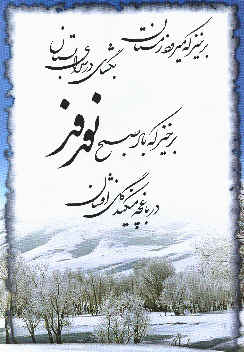 برخیز که میرود زمستان
بگشای در سرای بستان
برخیز که باد صبح نوروز
در باغچه میکند گل افشان